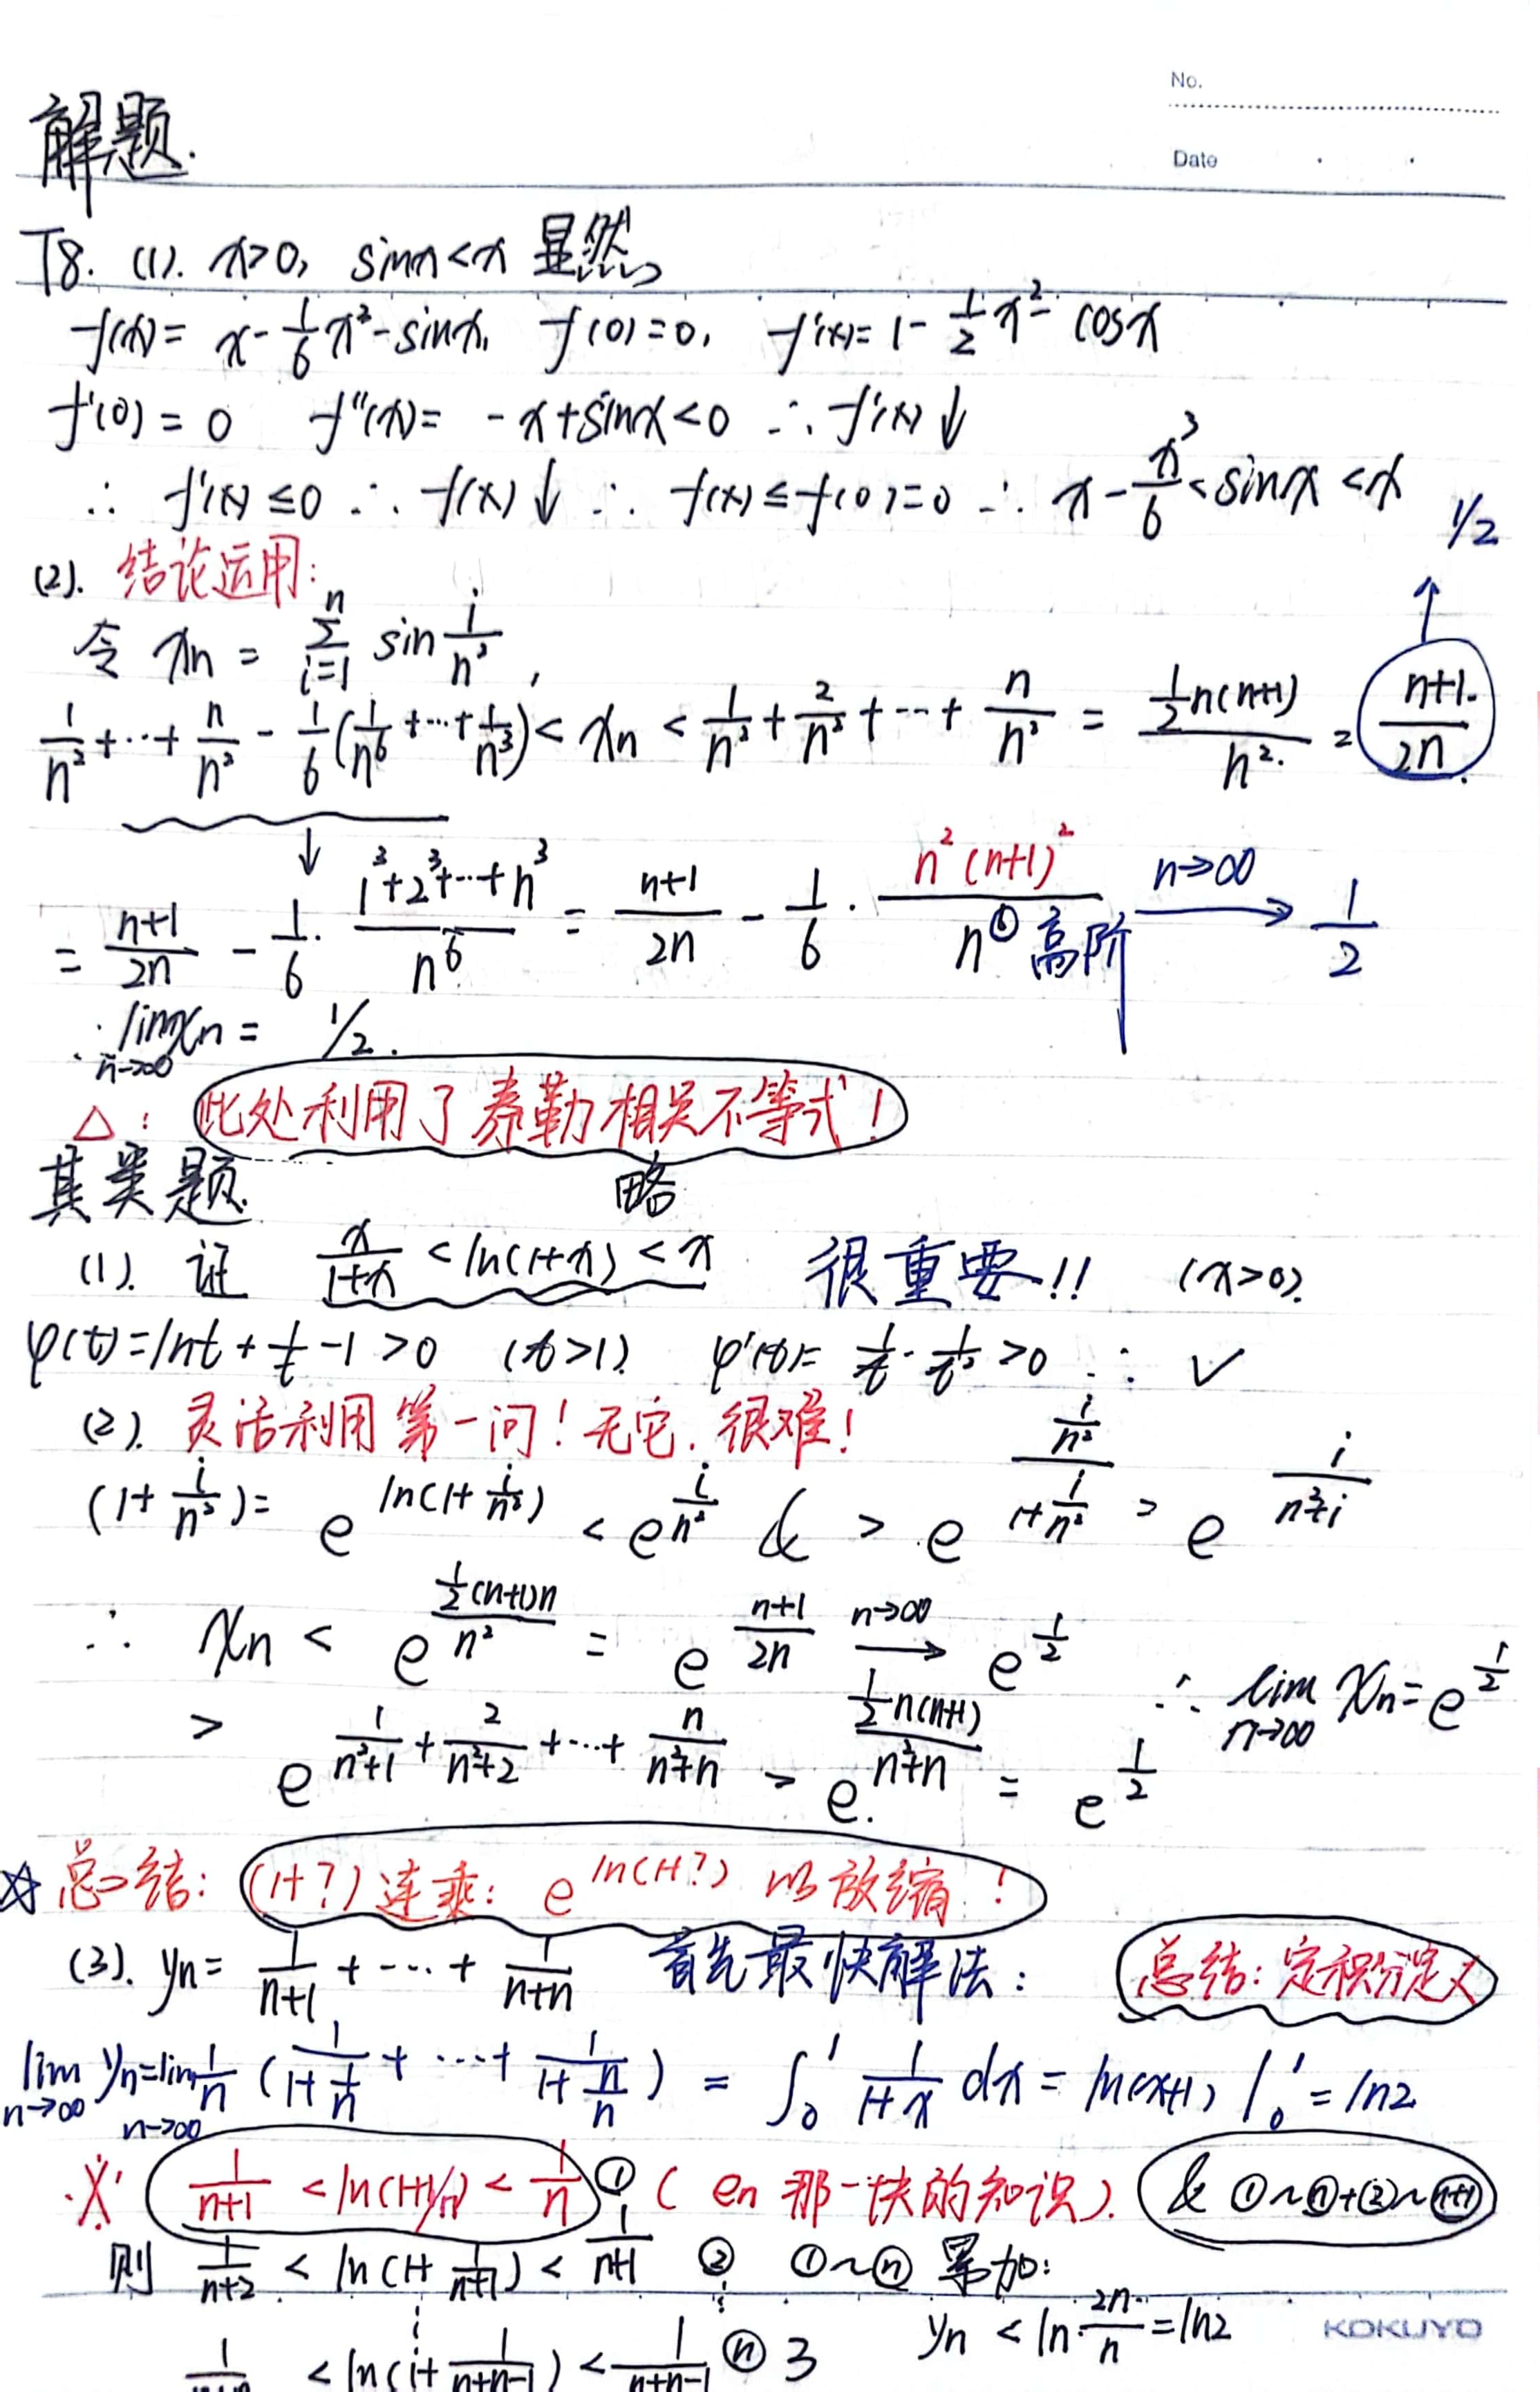 No.
Date
解题.
T8. (1). x>0, sinx<x 显然
f(x)= x-1/6x³-sinx, f(0)=0, f'(x)=1-1/2x²-cosx
f'(0)=0 f''(x)= -x+sinx<0 ∴f'(x)↓
∴ f'(x)≤0 ∴ f(x)↓ ∴ f(x)≤f(0)=0 ∴ x-x³/6<sinx<x
1/2
↑
(2). 结论运用:
令 xn = Σ_{i=1}^{n} sin i/n²,
1/n²+…+n/n² - 1/6(1/n⁶+…+1/n³)< xn < 1/n²+2/n²+…+n/n² = (1/2n(n+1))/n². = (n+1)/2n.
↓
= (n+1)/2n - 1/6·(1³+2³+…+n³)/n⁶ = (n+1)/2n - 1/6·(n²(n+1)²)/n⑥ 高阶 n→∞ → 1/2
∴lim_{n→∞} xn = 1/2.
△: 此处利用了泰勒相关不等式!
其类题 略
(1). 证 x/(1+x) <ln(1+x)<x 很重要!! (x>0).
φ(t)=lnt+1/t-1>0 (t>1). φ'(t)= 1/t-1/t²>0 ∴ ✓
(2). 灵活利用第一问!无它.很难!
(1+i/n²)= e^{ln(1+i/n²)} < e^{i/n²} & > e^{(i/n²)/(1+i/n²)} = e^{i/(n²+i)}
∴ xn < e^{(1/2(n+1)n)/n²} = e^{(n+1)/2n} n→∞ → e^{1/2}
∴ lim_{n→∞} xn=e^{1/2}
> e^{1/(n²+1)+2/(n²+2)+…+n/(n²+n)} > e^{(1/2n(n+1))/(n²+n)} = e^{1/2}
☆ 总结: (1+?)连乘: e^{ln(1+?)} 以放缩!
(3). yn= 1/(n+1)+…+1/(n+n) 首先最快解法: 总结:定积分定义
lim_{n→∞} yn=lim_{n→∞} 1/n (1/(1+1/n)+…+1/(1+n/n)) = ∫₀¹ 1/(1+x) dx = ln(x+1)|₀¹ =ln2
※ 1/(n+1) <ln(1+1/n)< 1/n ① ( en 那一块的知识). & ①~ⓝ+②~(n+1)
则 1/(n+2) < ln(1+1/(n+1)) < 1/(n+1) ② ①~ⓝ 累加:
⋮ ⋮
yn <ln·2n/n=ln2
1/(n+n) <ln(1+1/(n+n-1)) < 1/(n+n-1) ⓝ 3
KOKUYO